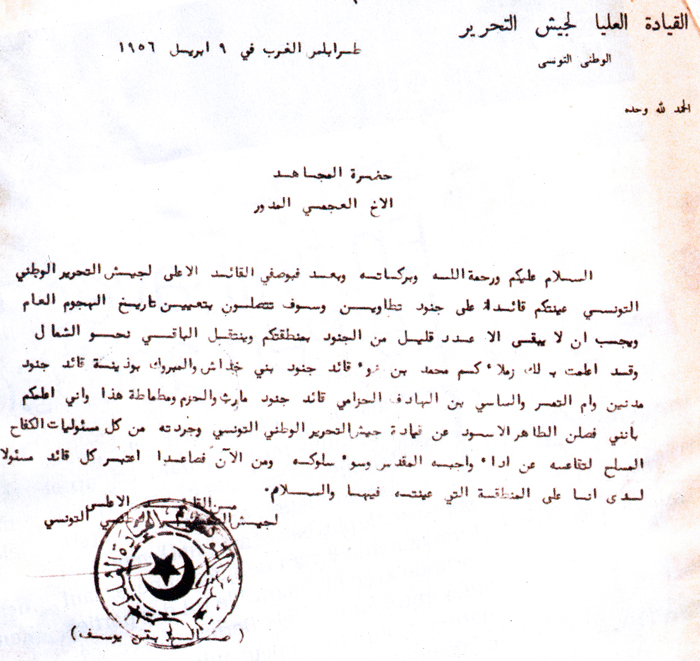 القيادة العليا لجيش التحرير
الوطني التونسي
طرابلس الغرب في ٩ ابريل ١٩٥٦
الحمد لله وحده
حضرة المجاهد
الاخ العجمي المدور
السلام عليكم ورحمة اللسه وبركاته وبعد فبوصفي القائد الاعلى لجيش التحرير الوطني
التونسي عينتكم قائدا على جنود تطاوين وسوف تتصلون بتعيين تاريخ الهجوم العام
ويجب ان لا يبقى الا عدد قليل من الجنود بمنطقتكم وينتقل الباقي نحو الشمال
وقد اعلمت بذلك زملاءكم محمد بن قائد جنود بني خداش والمبروك بوذينة قائد جنود
مدنين وام التمر والساسي بن الهادف الحزامي قائد جنود مارث والحزم ومطماطة هذا واني اعلمكم
بأنني فصلن الطاهر الاسود عن قيادة جيش التحرير الوطني التونسي وجردته من كل مسئوليات الكفاح
المسلح لتقاعسه عن اداء واجبه المقدس وسوء سلوكه ومن الآن فصاعدا اعتبر كل قائد مسئولا
لدى انا على المنطقة التي عينته فيها والسلام.
من القائد الاعلى
لجيش التونسي
( صـ بن يوسف )